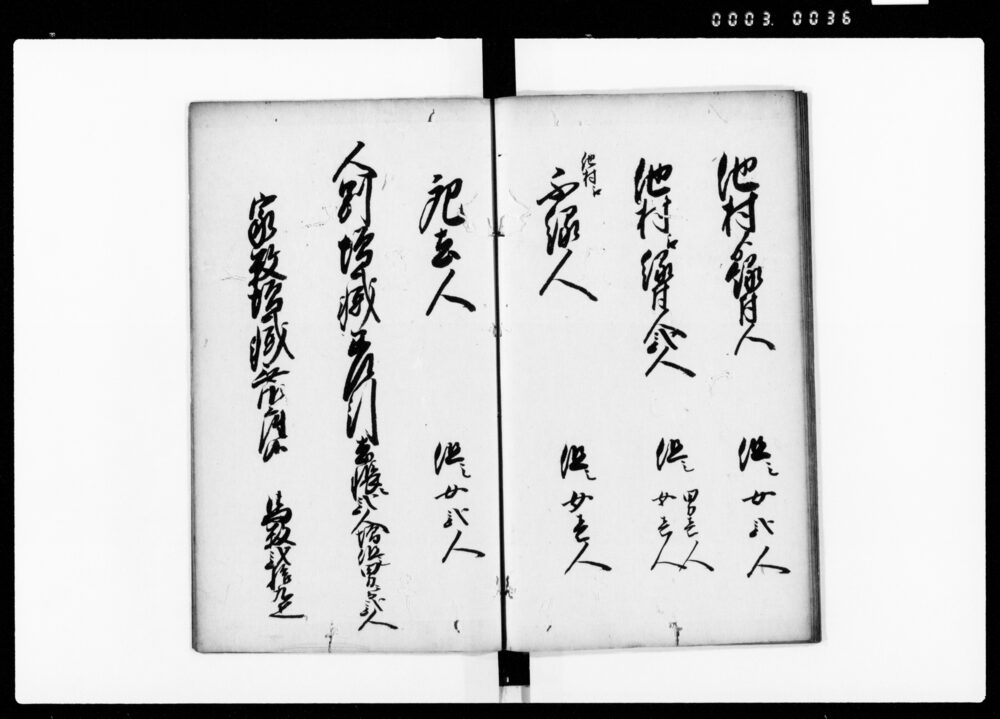 0003. 0036
他村ゟ縁付人
但シ女弐人
他村江縁付弐人
但シ男壱人
女壱人
他村江
不縁人
但シ女壱人
死去人
但シ女弐人
人別増減
去帳ニ弐人増但男弐人
家数増減無御座候
馬数弐拾九疋